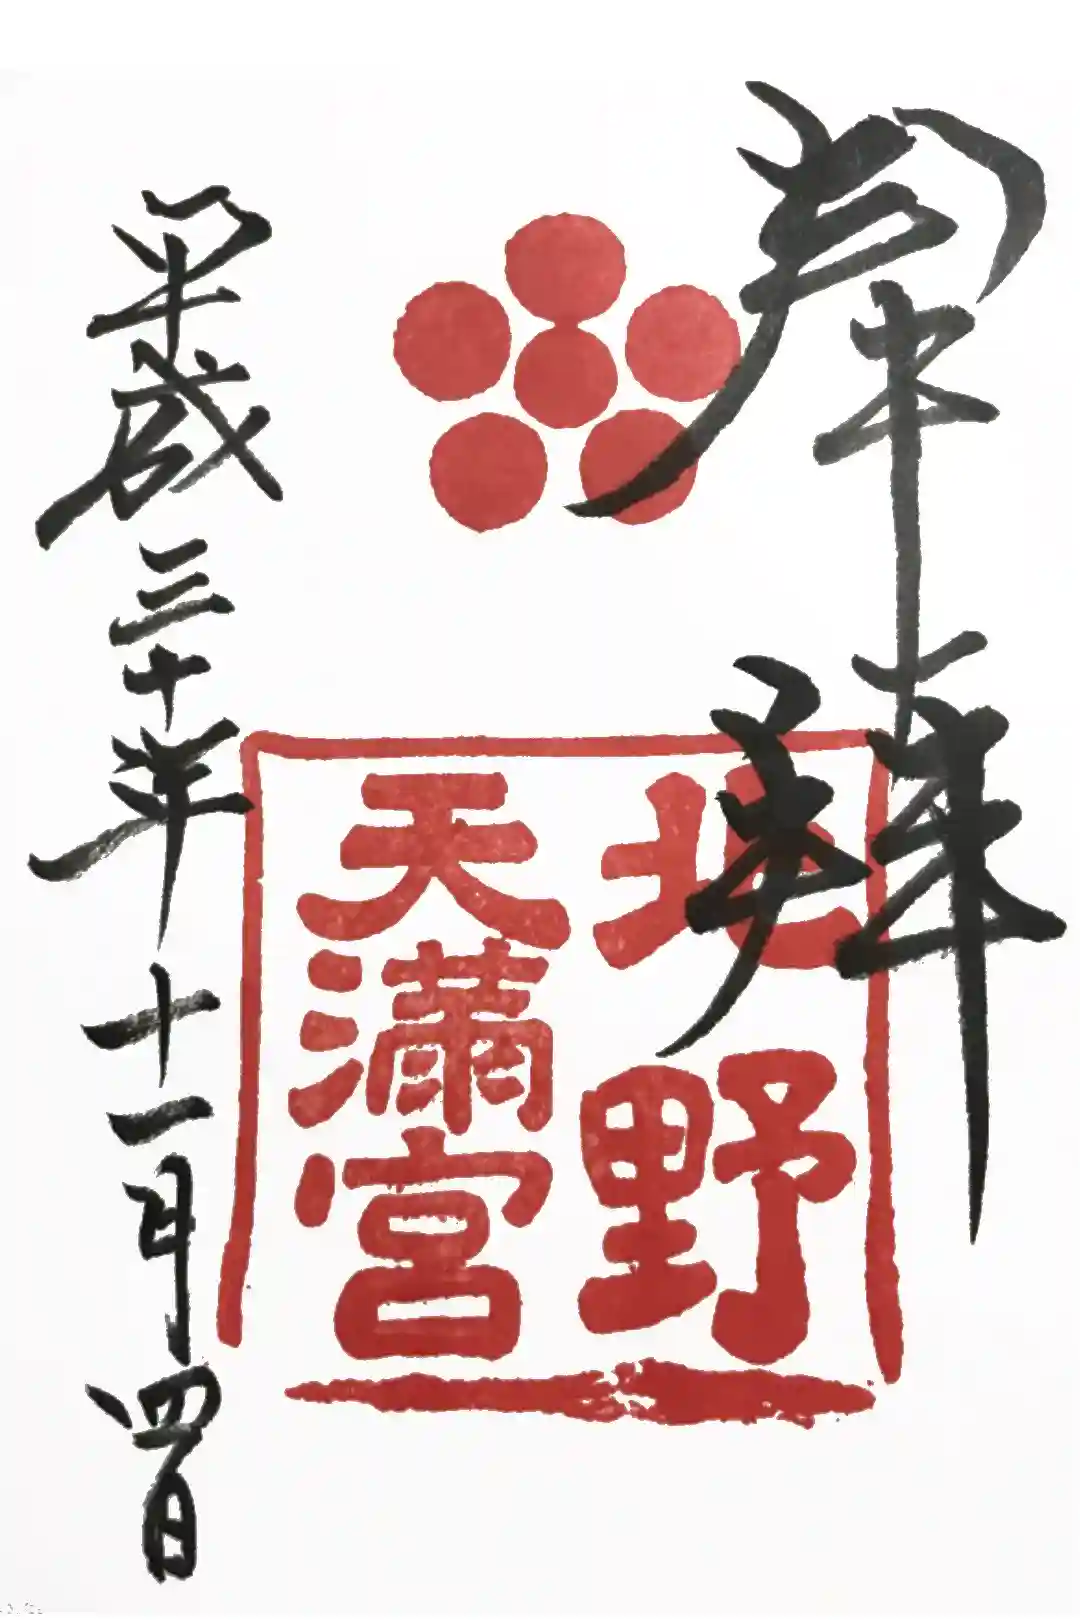 奉拝
北野
天満宮
平成三十年十一月四日